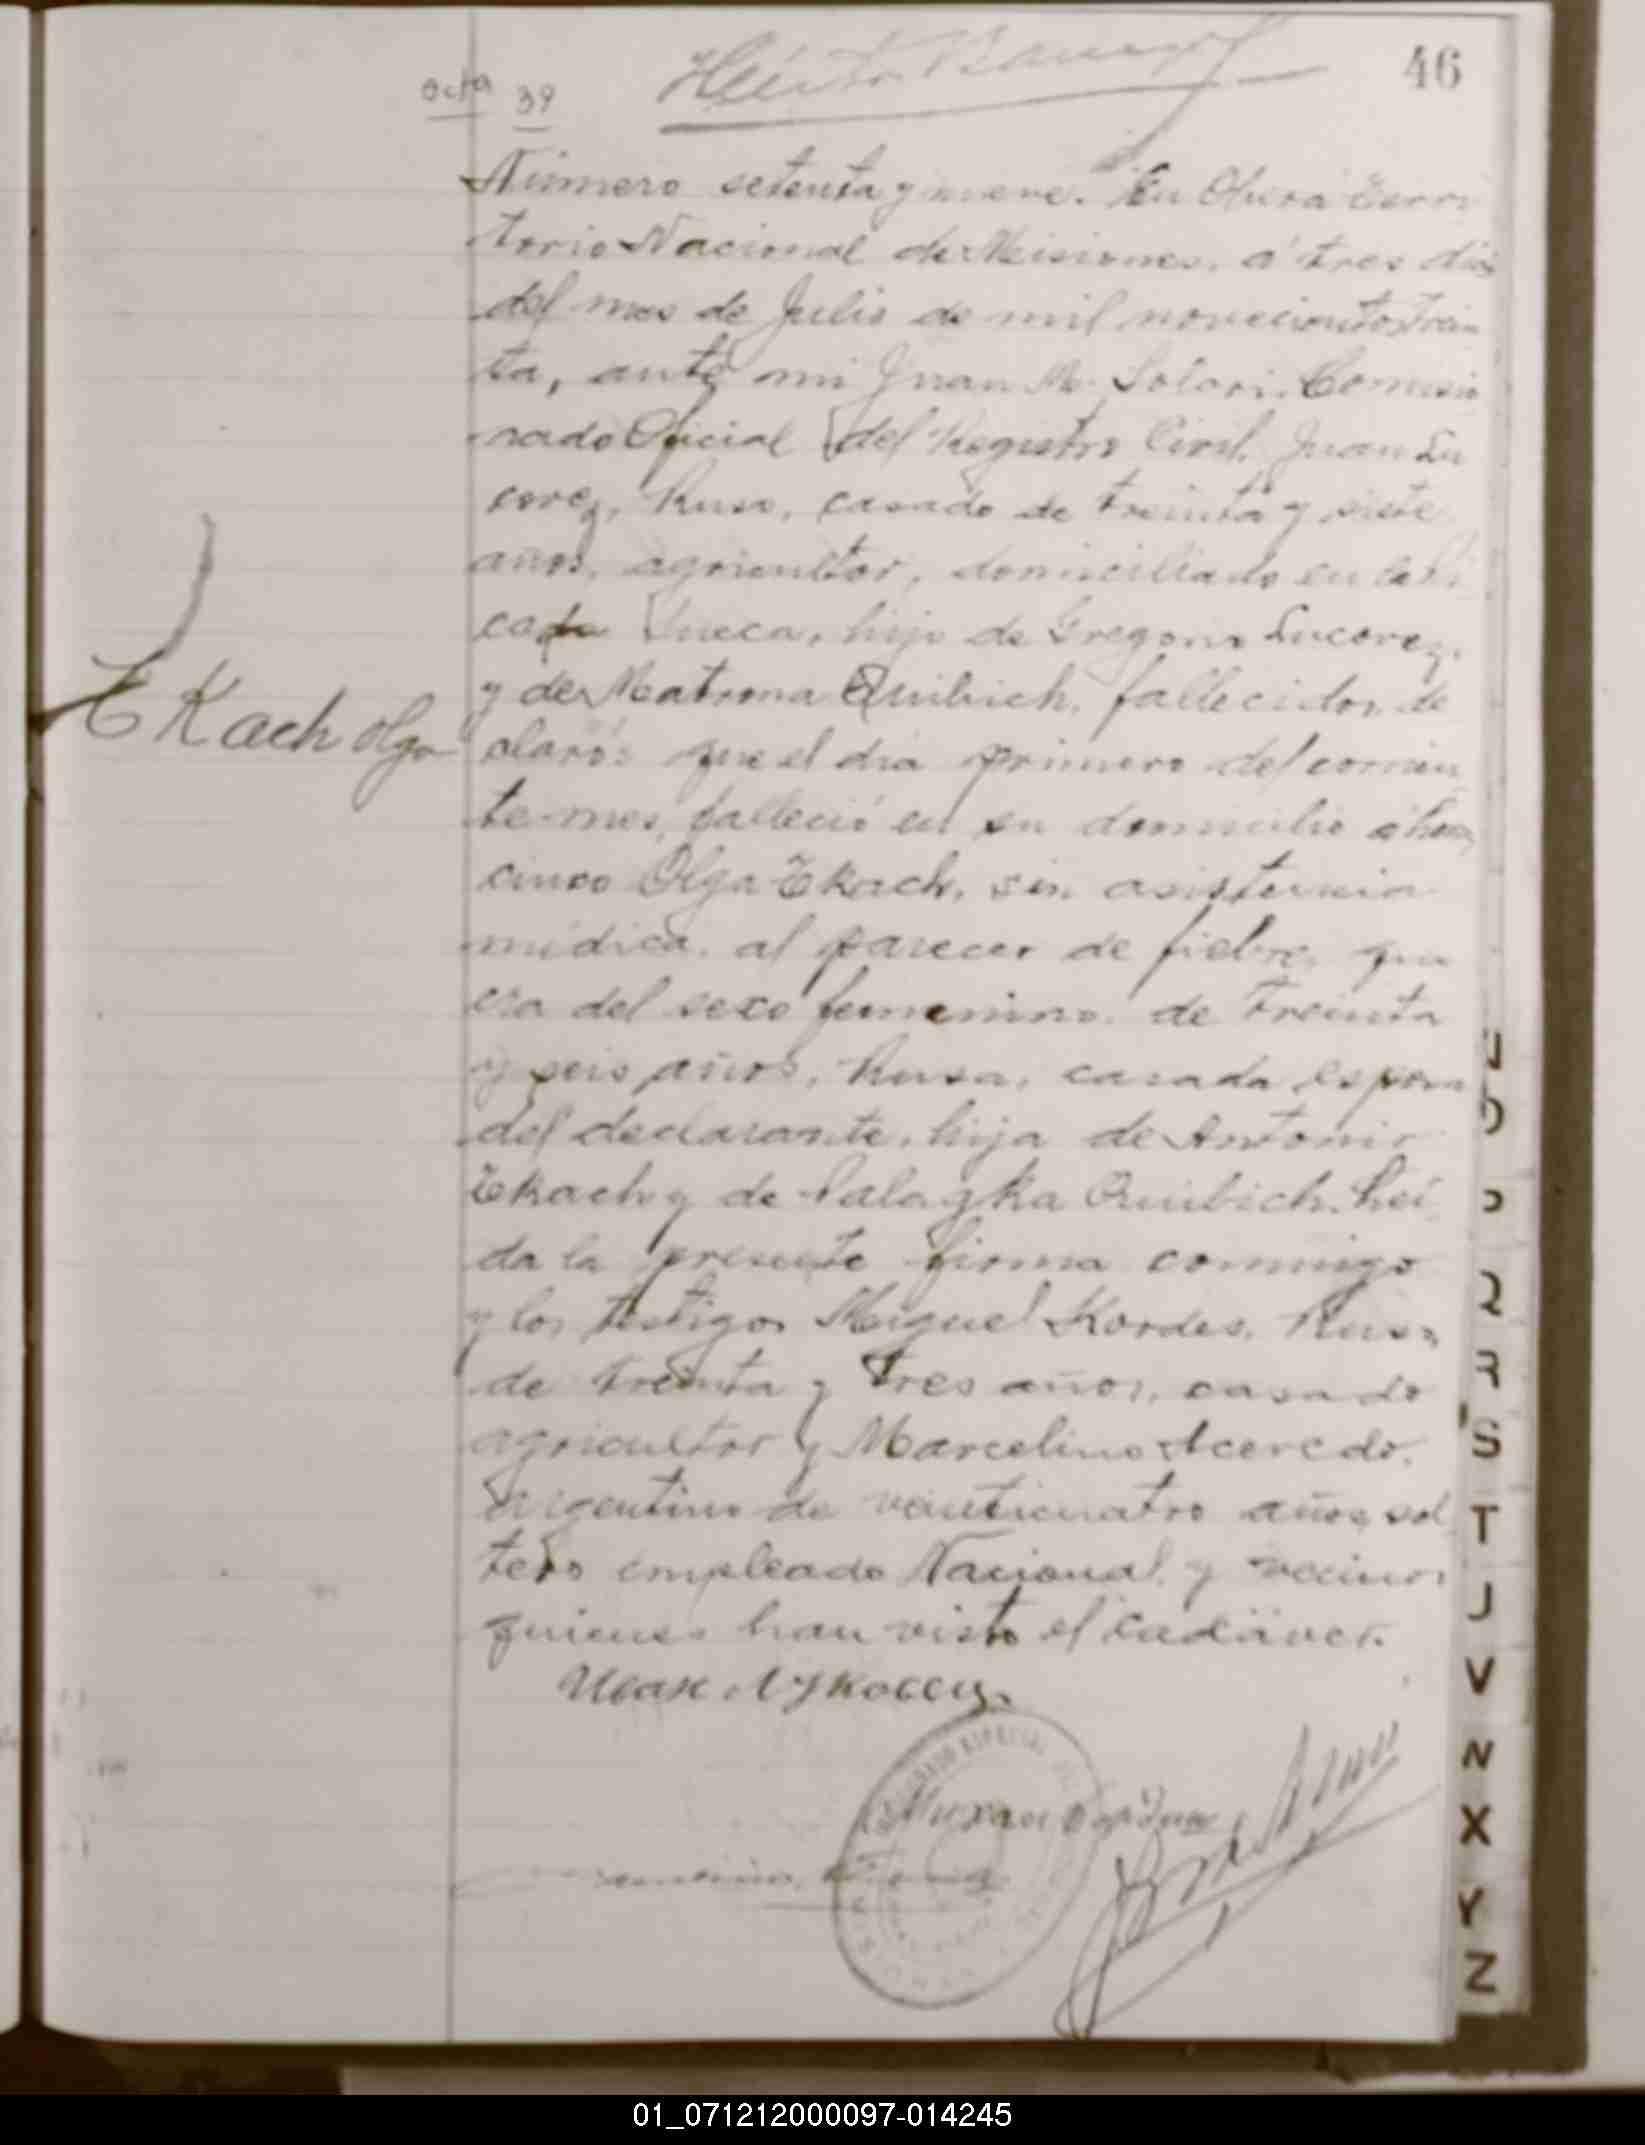 46
acta 39
Número setenta y nueve. En Oberá Terri
torio Nacional de Misiones, á tres dias
del mes de Julio de mil novecientos trein
ta, ante mi Juan M. Solari, Comisio
nado Oficial del Registro Civil, Juan Lu
corez, Ruso, casado de treinta y siete
años, agricultor, domiciliado en la Pi
cada Sueca, hijo de Gregorio Lucorez,
y de Matrona Quibich, fallecidos, de
claró: que el dia primero del corrien
te mes, falleció en su domicilio á horas
cinco Olga Ekach, sin asistencia
médica, al parecer de fiebre, que
era del sexo femenino, de treinta
y seis años, Rusa, casada esposa
del declarante, hija de Antonio
Ekach y de Palagka Quibich. Leí
da la presente firma conmigo
y los testigos Miguel Kordes, Ruso,
de treinta y tres años, casado
agricultor y Marcelino Acevedo,
argentino de veinticuatro años, sol
tero empleado Nacional, y vecinos
quienes han visto el cadáver.
Ekach Olga
Q
R
S
T
J
V
N
X
Y
Z
01_071212000097-014245